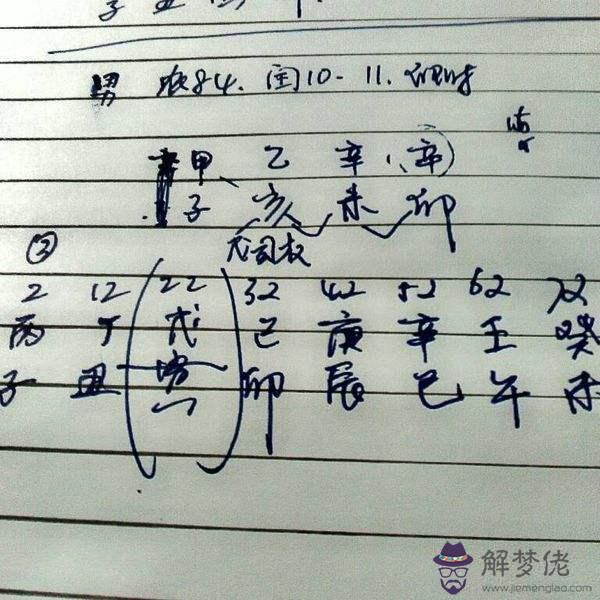 男 农84.闰10-11.卯时
甲 乙 辛 (辛)
子 亥 未 卯
2 12 22 32 42 52 62 72
丙 丁 戊 己 庚 辛 壬 癸
子 丑 寅 卯 辰 巳 午 未
解梦佬
www.jiemenglao.com